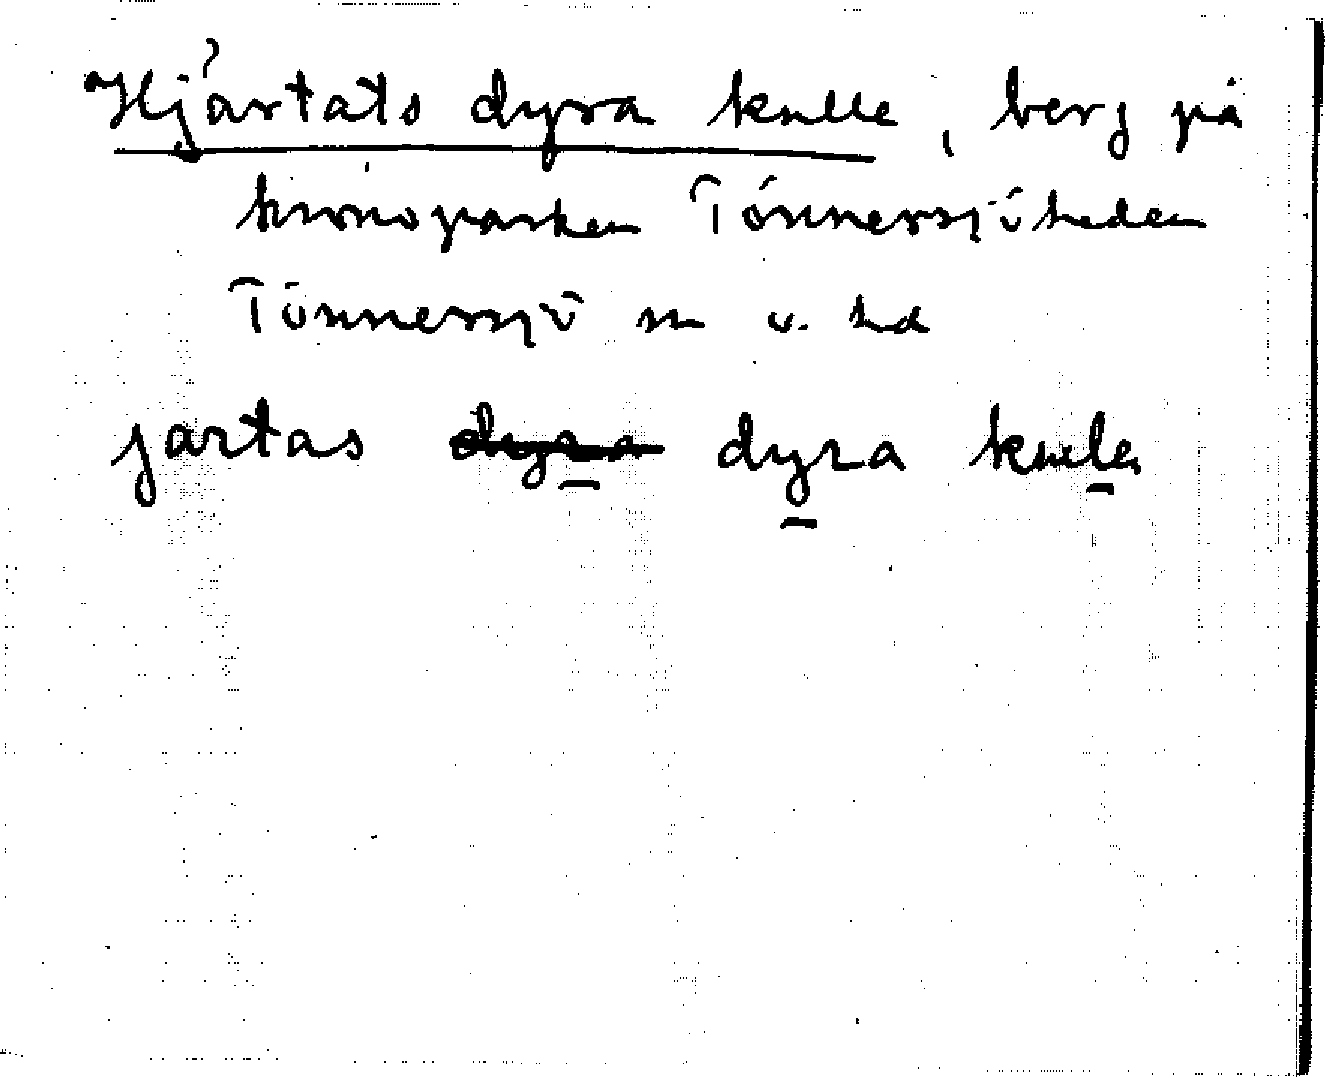 ?Hjärtats dyra kulle, berg på
kronoparken Tönnersjöheden
Tönnersjö sn o. hd
jartas dyra dyra kule